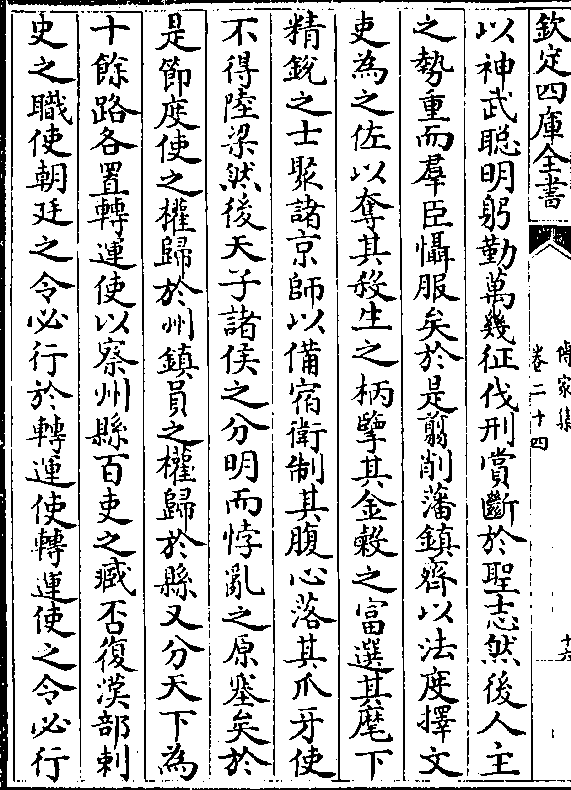 欽定四庫全書
傳家集
卷二十四
十六
以神武聰明躬勤萬幾征伐刑賞斷於聖志然後人主
之勢重而羣臣懾服矣於是翦削藩鎮齊以法度擇文
吏為之佐以奪其殺生之柄擥其金穀之富選其麾下
精銳之士聚諸京師以備宿衛制其腹心落其爪牙使
不得陸梁然後天子諸侯之分明而悖亂之原塞矣於
是節度使之權歸於州鎮員之權歸於縣又分天下為
十餘路各置轉運使以察州縣百吏之臧否復漢部刺
史之職使朝廷之令必行於轉運使轉運使之令必行